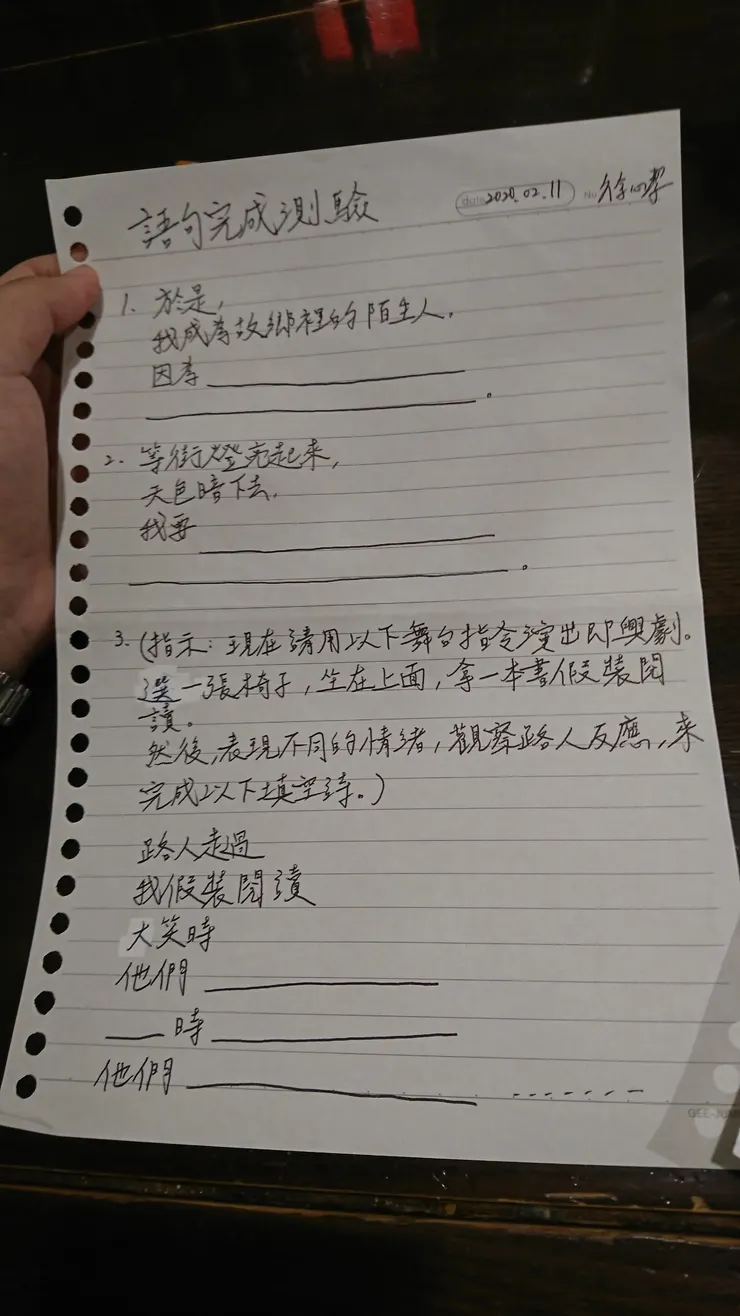 語句完成測驗
date 2020.02.11 No 徐心潔
1. 於是,
我成為故鄉裡的陌生人,
因為
。
2. 等街燈亮起來,
天色暗下去,
我要
。
3. (指示:現在請用以下舞台指令演出即興劇。
選一張椅子,坐在上面,拿一本書假裝閱
讀。
然後,表現不同的情緒,觀察路人反應,來
完成以下填空詩。)
路人走過
我假裝閱讀
大笑時
他們
時
他們